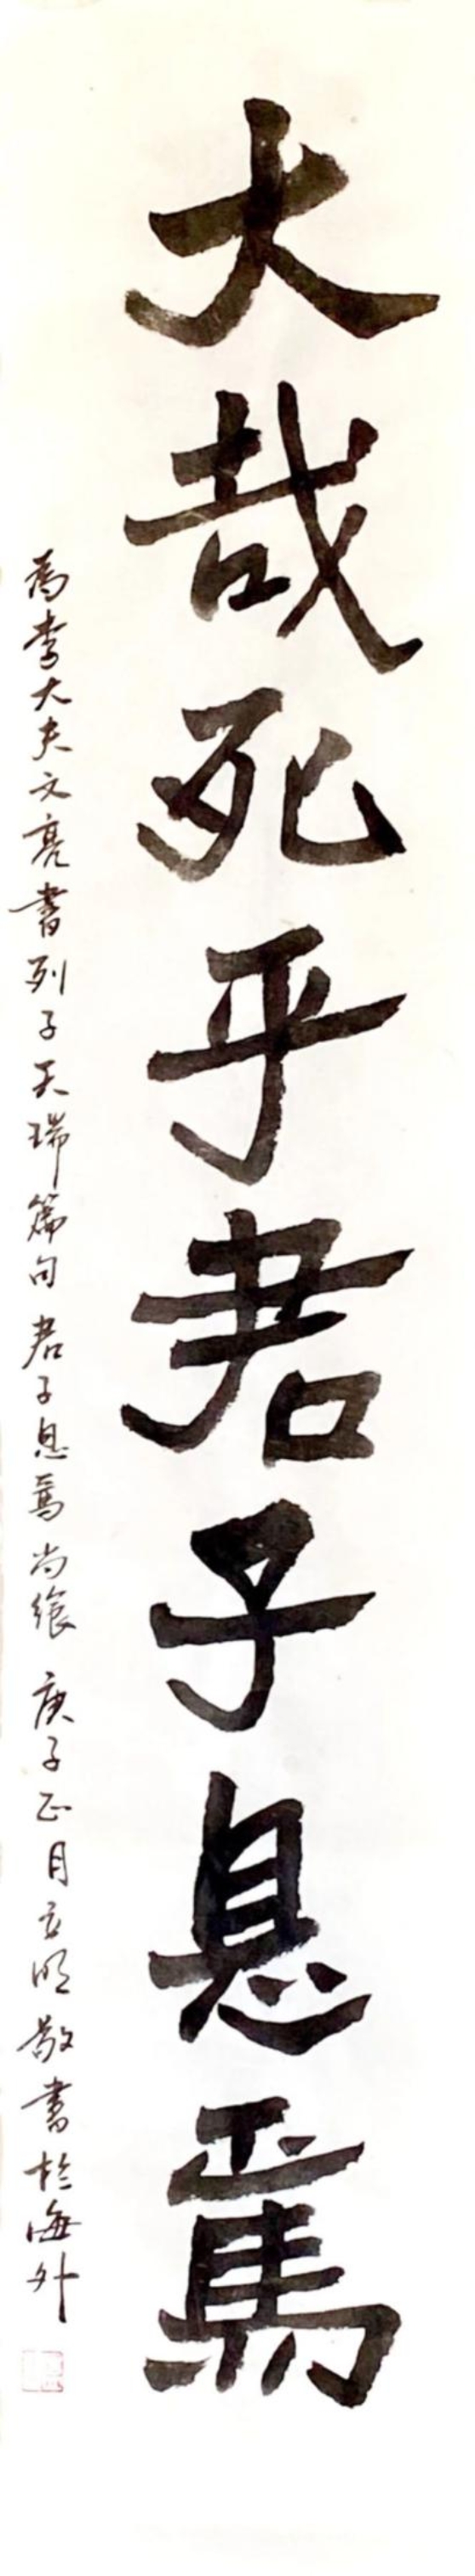 大哉死乎君子息焉
為李大夫文亮書列子天瑞篇句君子息焉尚饗庚子正月立明敬書於海外